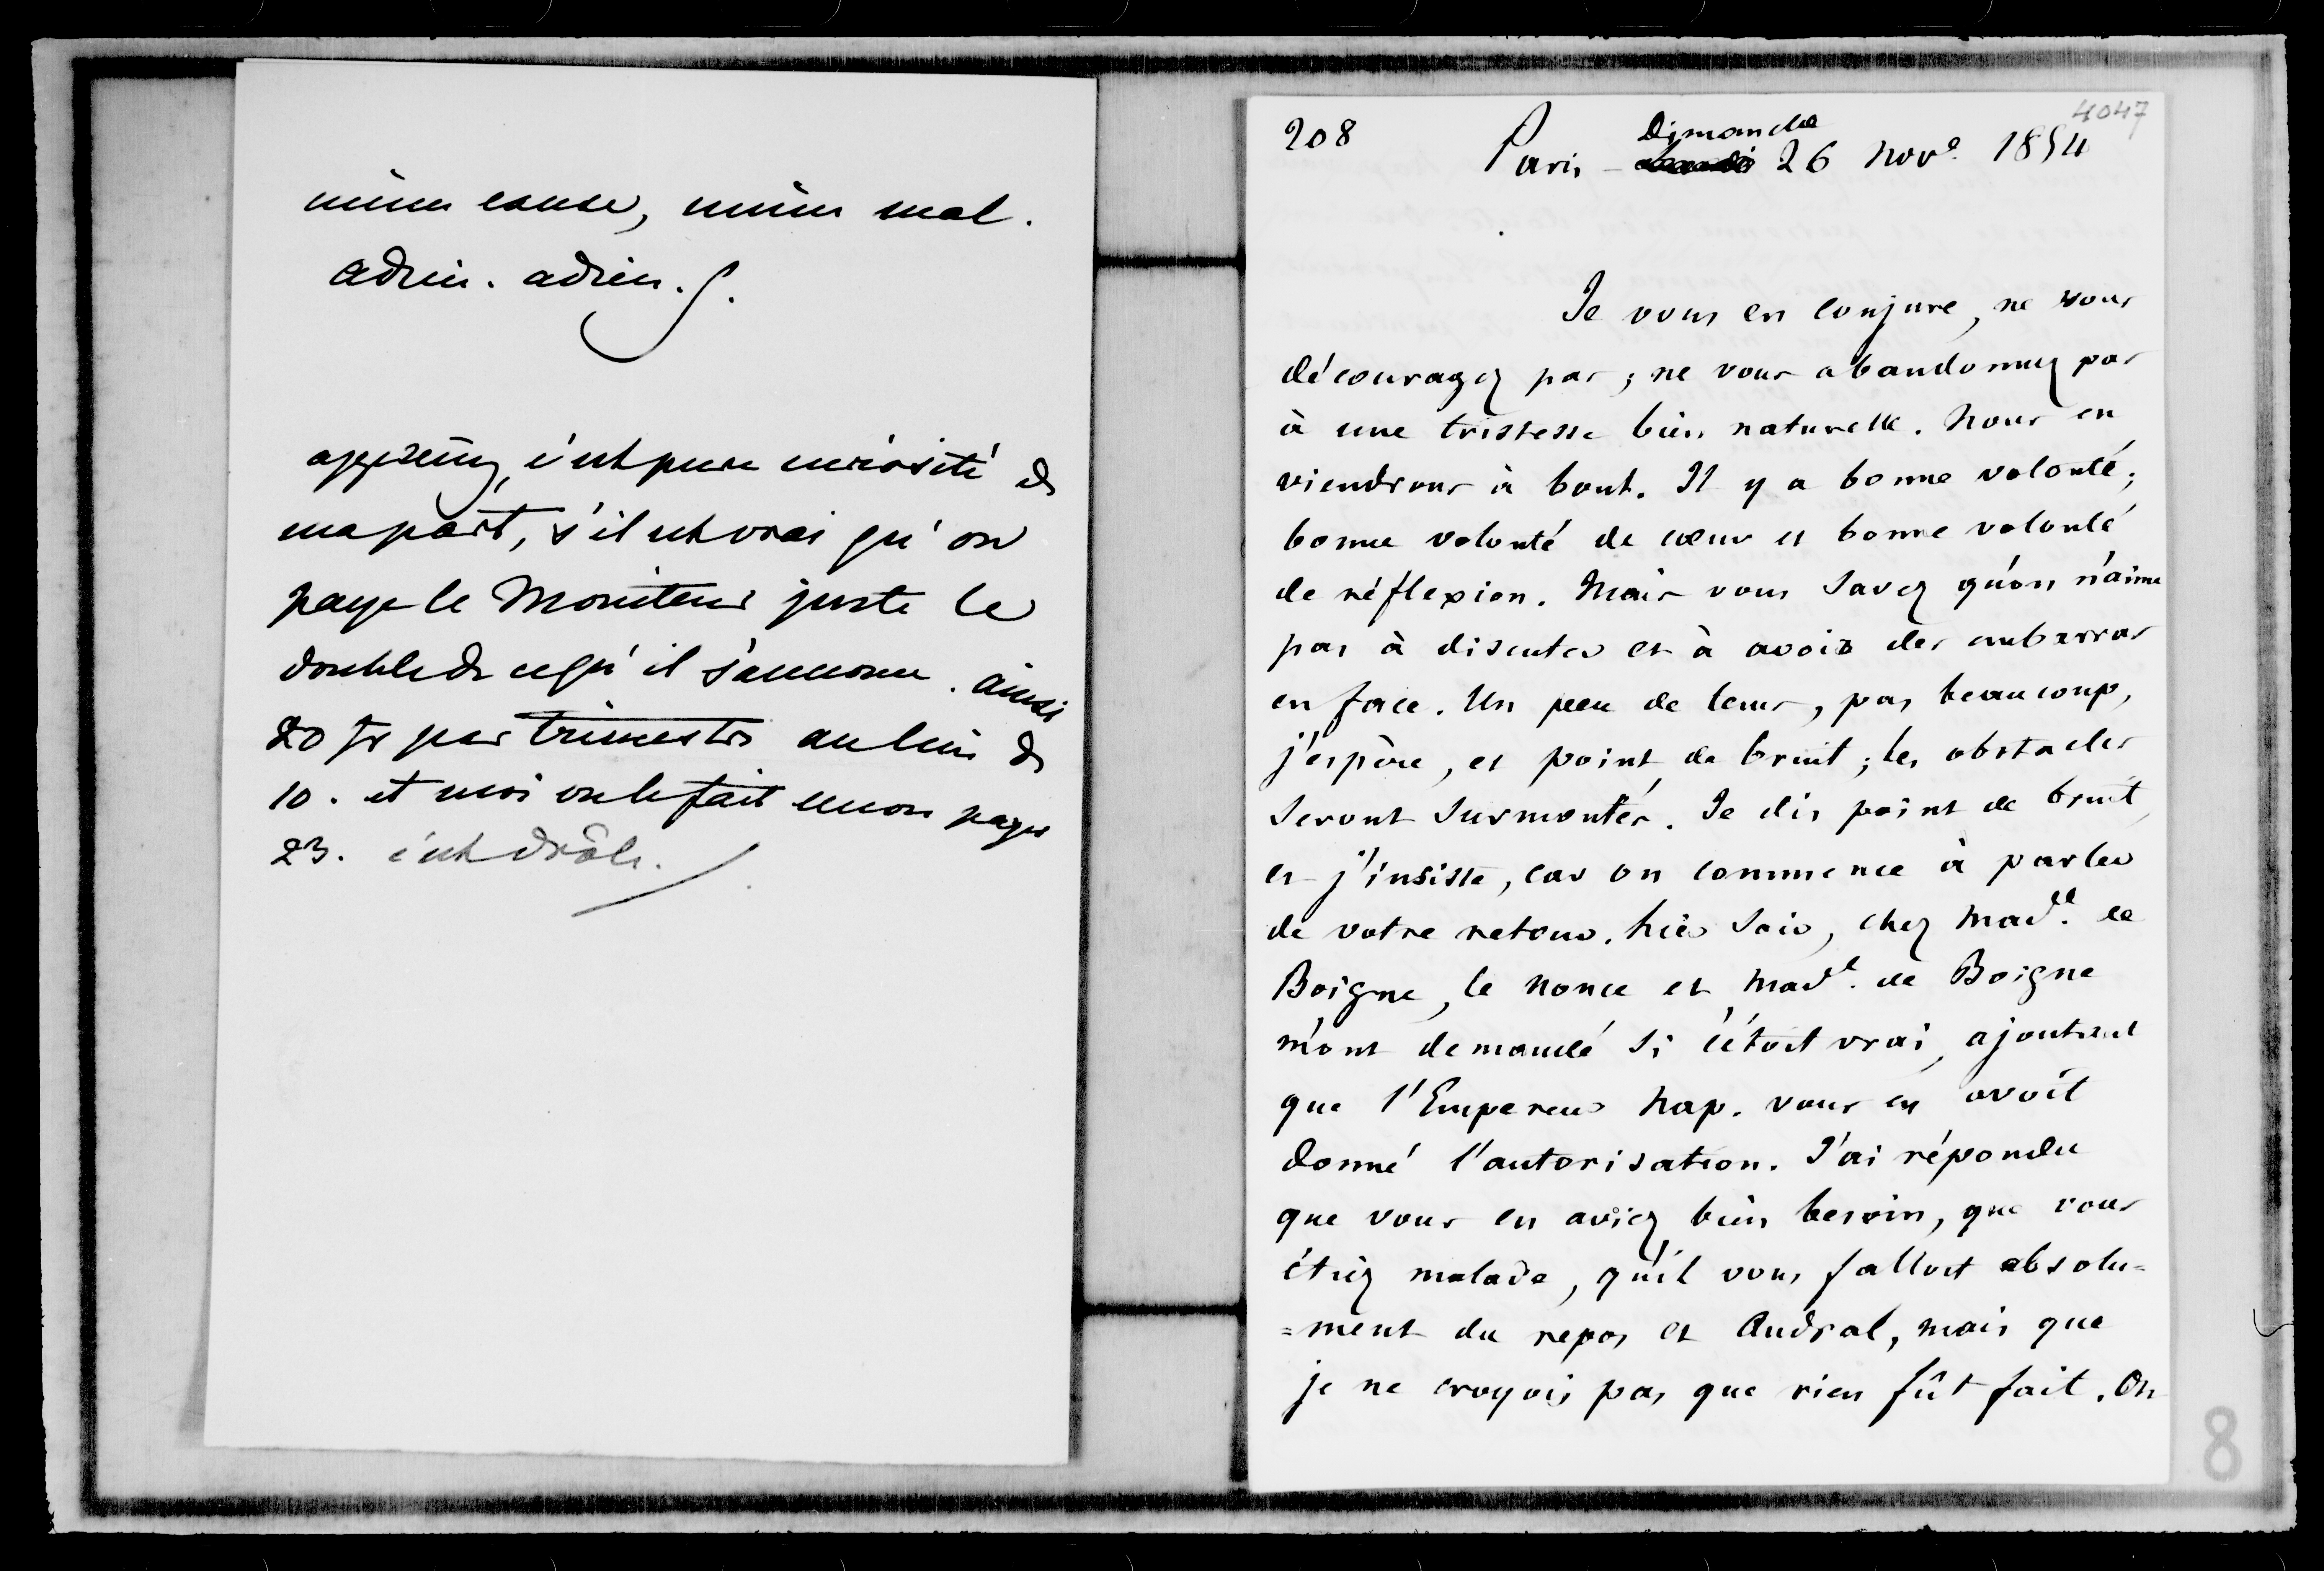 même cause, même mal.
adieu. adieu.
apprenez, c'est pure curiosité de
ma part, s'il est vrai qu'on
paye le Moniteur juste le
double de ce qu'il s'annonce. ainsi
20 fr par trimestre au lieu de
10. et moi on le fait encore payer
23. c'est drôle.
4047
208
Dimanche
Paris - 26 Nove. 1854
Je vous en conjure, ne vous
découragez pas ; ne vous abandonnez pas
à une tristesse bien naturelle. Nous en
viendrons à bout. Il y a bonne volonté ;
bonne volonté de cœur et bonne volonté
de réflexion. Mais vous savez qu'on n'aime
pas à discuter et à avoir des embarras
en face. Un peu de tems, pas beaucoup,
j'espère, et point de bruit ; les obstacles
seront surmontés. Je dis point de bruit,
et j'insiste, car on commence à parler
de votre retour. Hier soir, chez Made. de
Boigne, le nonce et Made. de Boigne
m'ont demandé si c'étoit vrai, ajoutant
que l'Empereur Nap. vous en avoit
donné l'autorisation. J'ai répondu
que vous en aviez bien besoin, que vous
étiez malade, qu'il vous falloit absolu=
=ment du repos et Andral, mais que
je ne croyois pas que rien fût fait. On
8